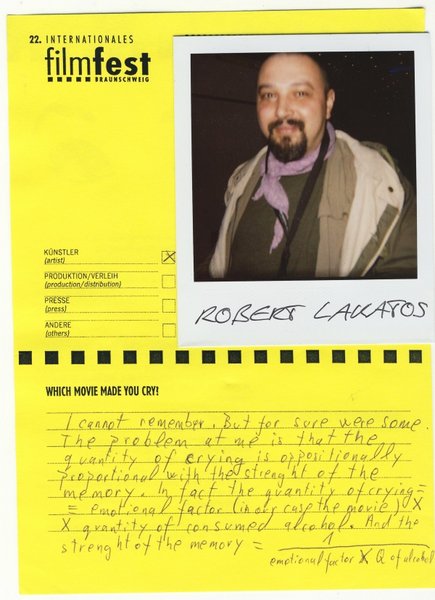 22. INTERNATIONALES
filmfest
BRAUNSCHWEIG
KÜNSTLER
(artist)
X
PRODUKTION/VERLEIH
(production/distribution)
PRESSE
(press)
ANDERE
(others)
ROBERT LAKATOS
WHICH MOVIE MADE YOU CRY?
I cannot remember. But for sure were some.
The problem at me is that the
quantity of crying is oppositionally
proportional with the strenght of the
memory. In fact the quantity of crying=
= emotional factor (in our case the movie) X
X quantity of consumed alcohol. And the
strenght of the memory = 1
emotional factor X Q of alcohol